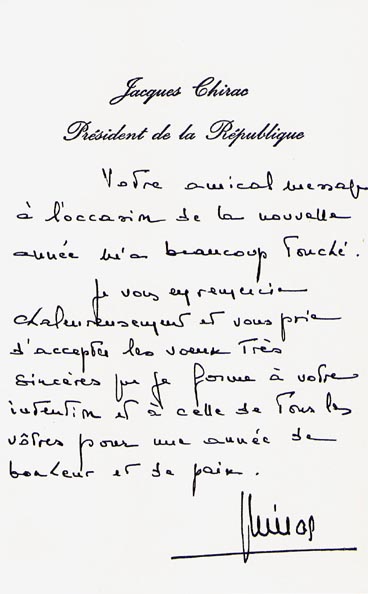 Jacques Chirac
Président de la République
Votre amical message
à l'occasion de la nouvelle
année m'a beaucoup touché.
Je vous en remercie
chaleureusement et vous prie
d'accepter les vœux très
sincères que je forme à votre
intention et à celle de tous les
vôtres pour une année de
bonheur et de paix.